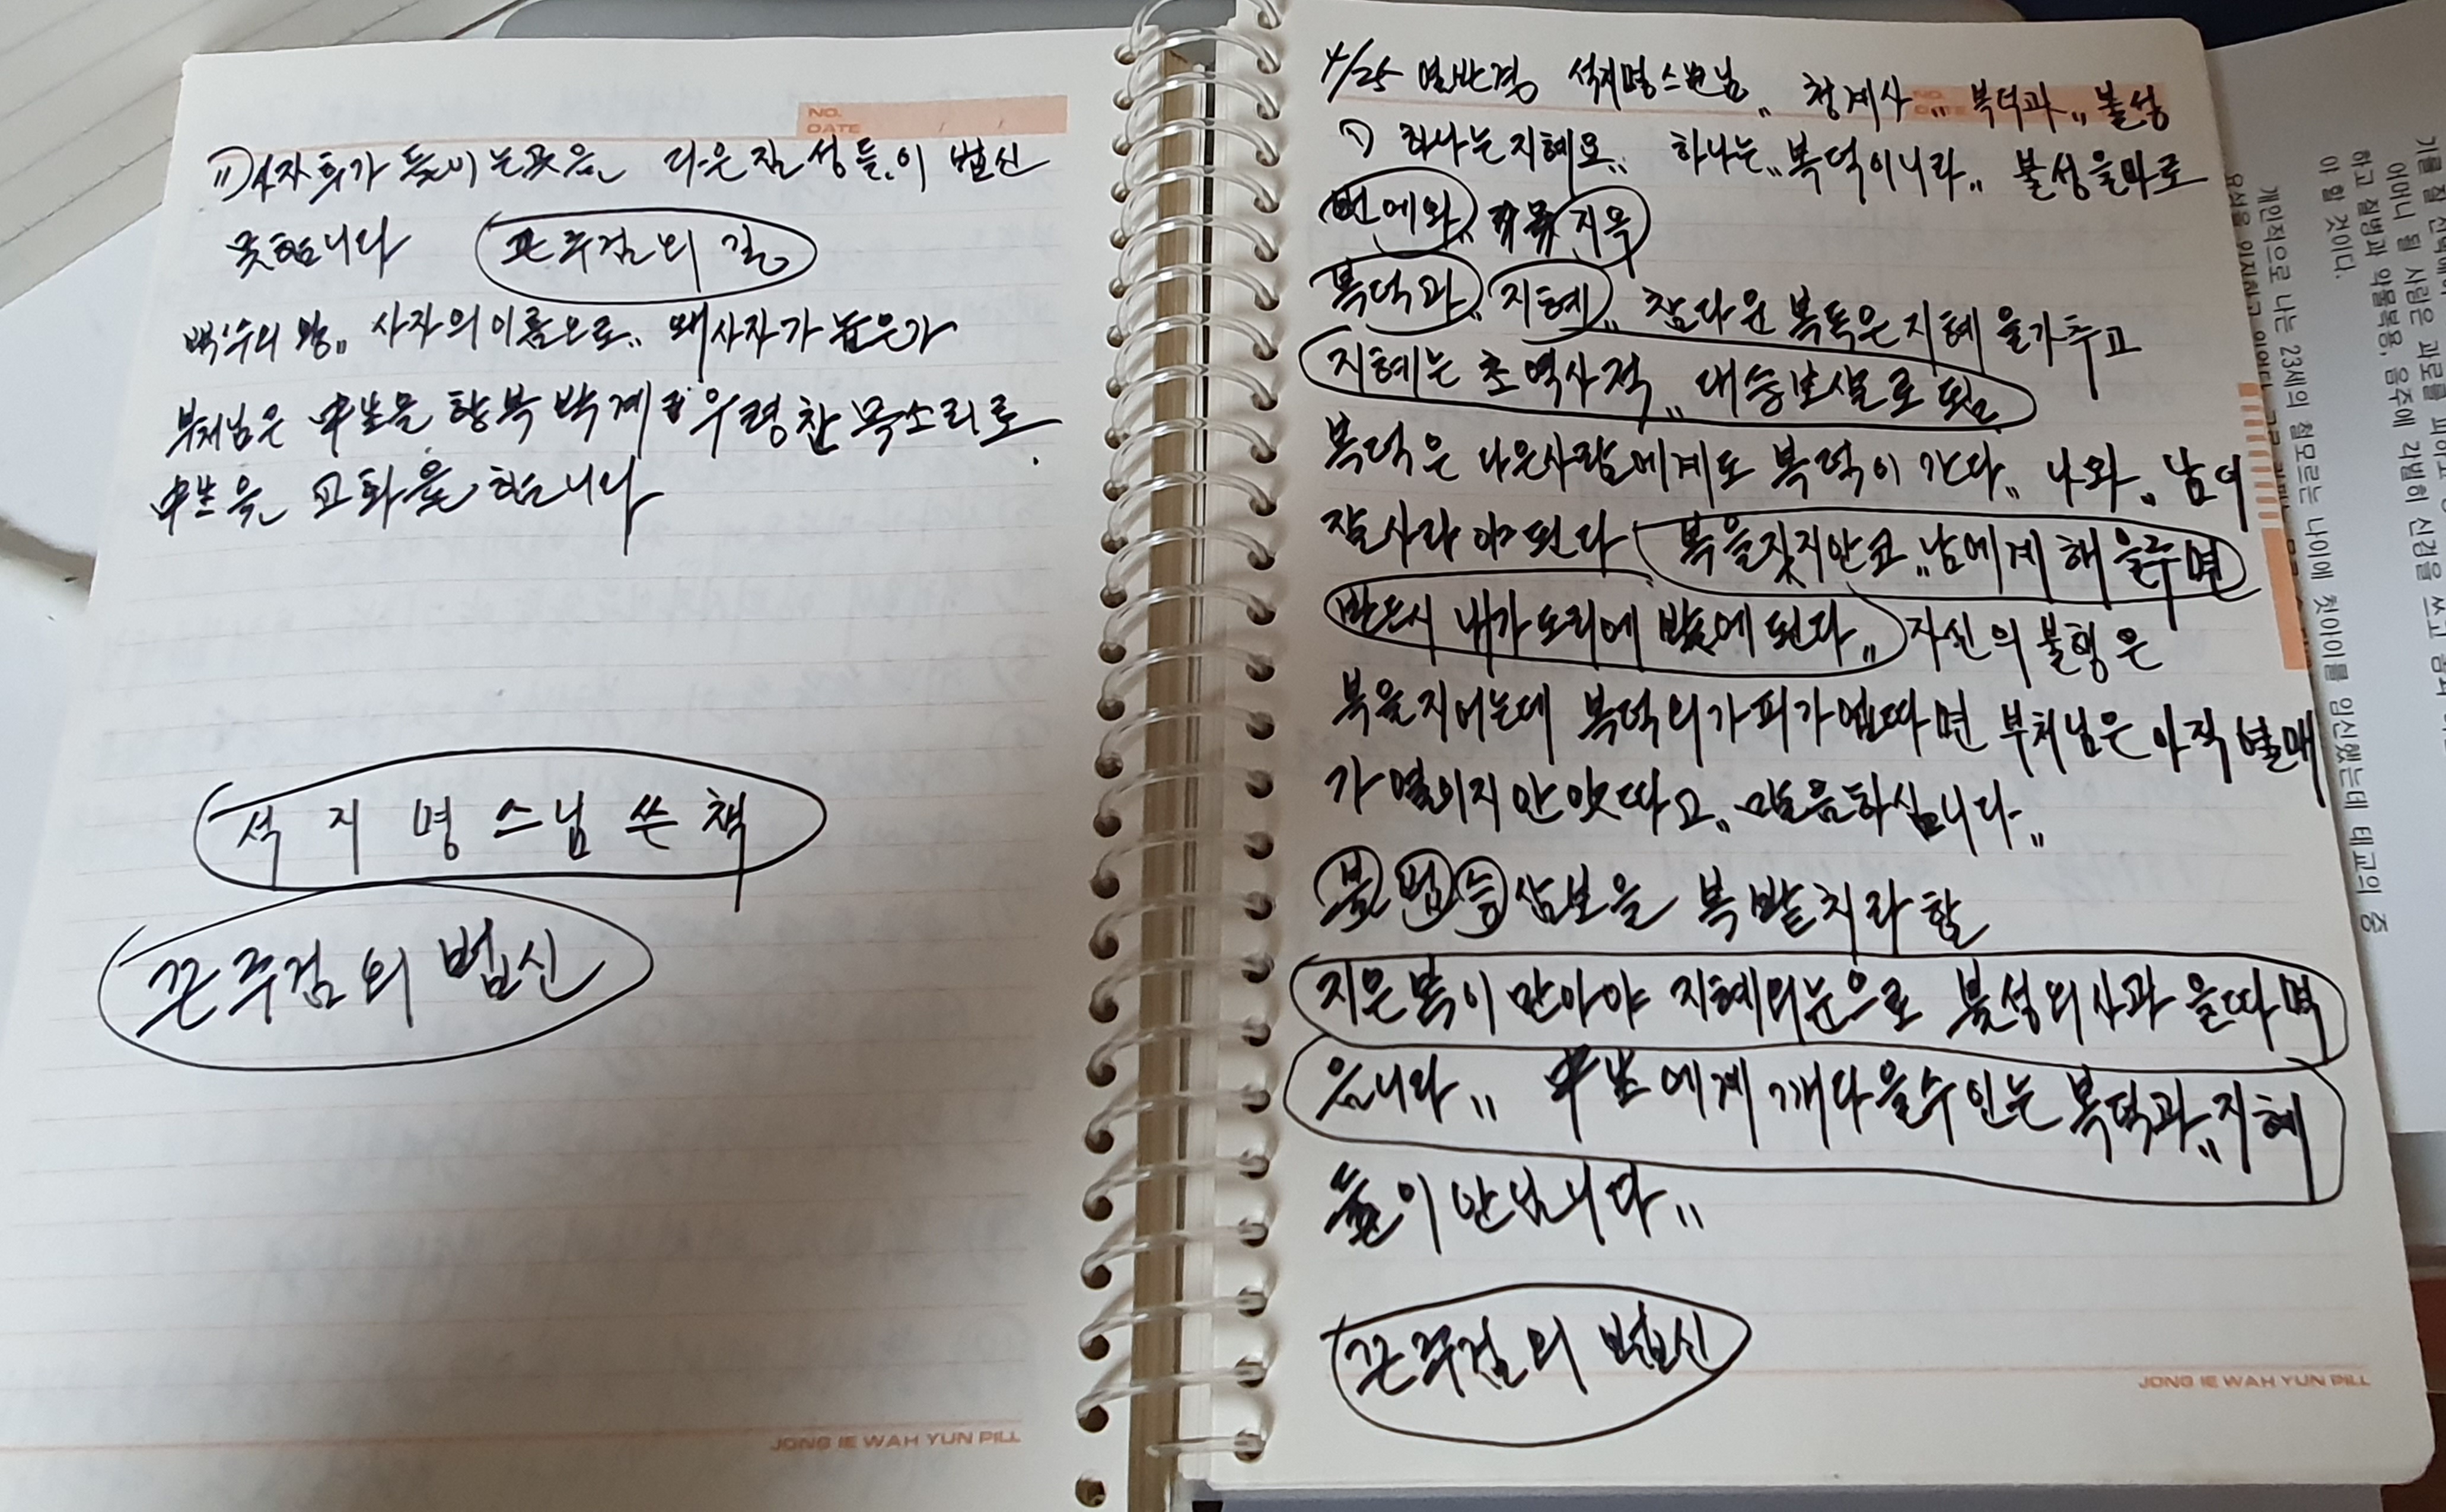 NO.
DATE / /
11) 사자후가 들이는곳은 다은짐성들이 범신
못합니다 큰주검의 길
백수의 왕〃 사자의이름으로〃 왜사자가 높은가
부처님은 中生을 항복 박게 우렁찬 목소리로
中生을 교화을 합니다
석지명스님 쓴 책
큰주검의 법신
JONG IE WAH YUN PILL
4/25 열반경 석지명스번님〃 청계사〃 복덕과〃 불성
1) 하나는지혜요〃 하나는〃복덕이니라〃 불성을바로
번에와 지옥
복덕과〃 지혜〃 참다운 복독은지혜을가추고
지혜는 초역사적〃 대승보살로 됨
복덕은 다은사람에게도 복덕이 간다〃 나와〃 남이
잘사라야된다 복을짖지안코〃남에게 해을주면
반드시 내가도리에 받에된다〃 자신의불행은
복을지어는데 복덕의가피가엡따면 부처님은 아직 열매
가 열이지안앗따고〃 말음하십니다〃
불법승삼보을 복밭치라함
지은복이 만아야 지혜의눈으로 불성의사과을따먹
음니다〃 中生에게 깨다을수인는 복덕과〃지혜
둘이안닙니다〃
큰주검의 법신
JONG IE WAH YUN PILL
개인적으로 나는 23세의 철모르는 나이에 첫아이를 임신했는데 태교의 중
어머니 될 사람은 과로를 피하고
하고 질병과 약물복용, 음주에 각별히 신경을 쓰고
야 할 것이다.